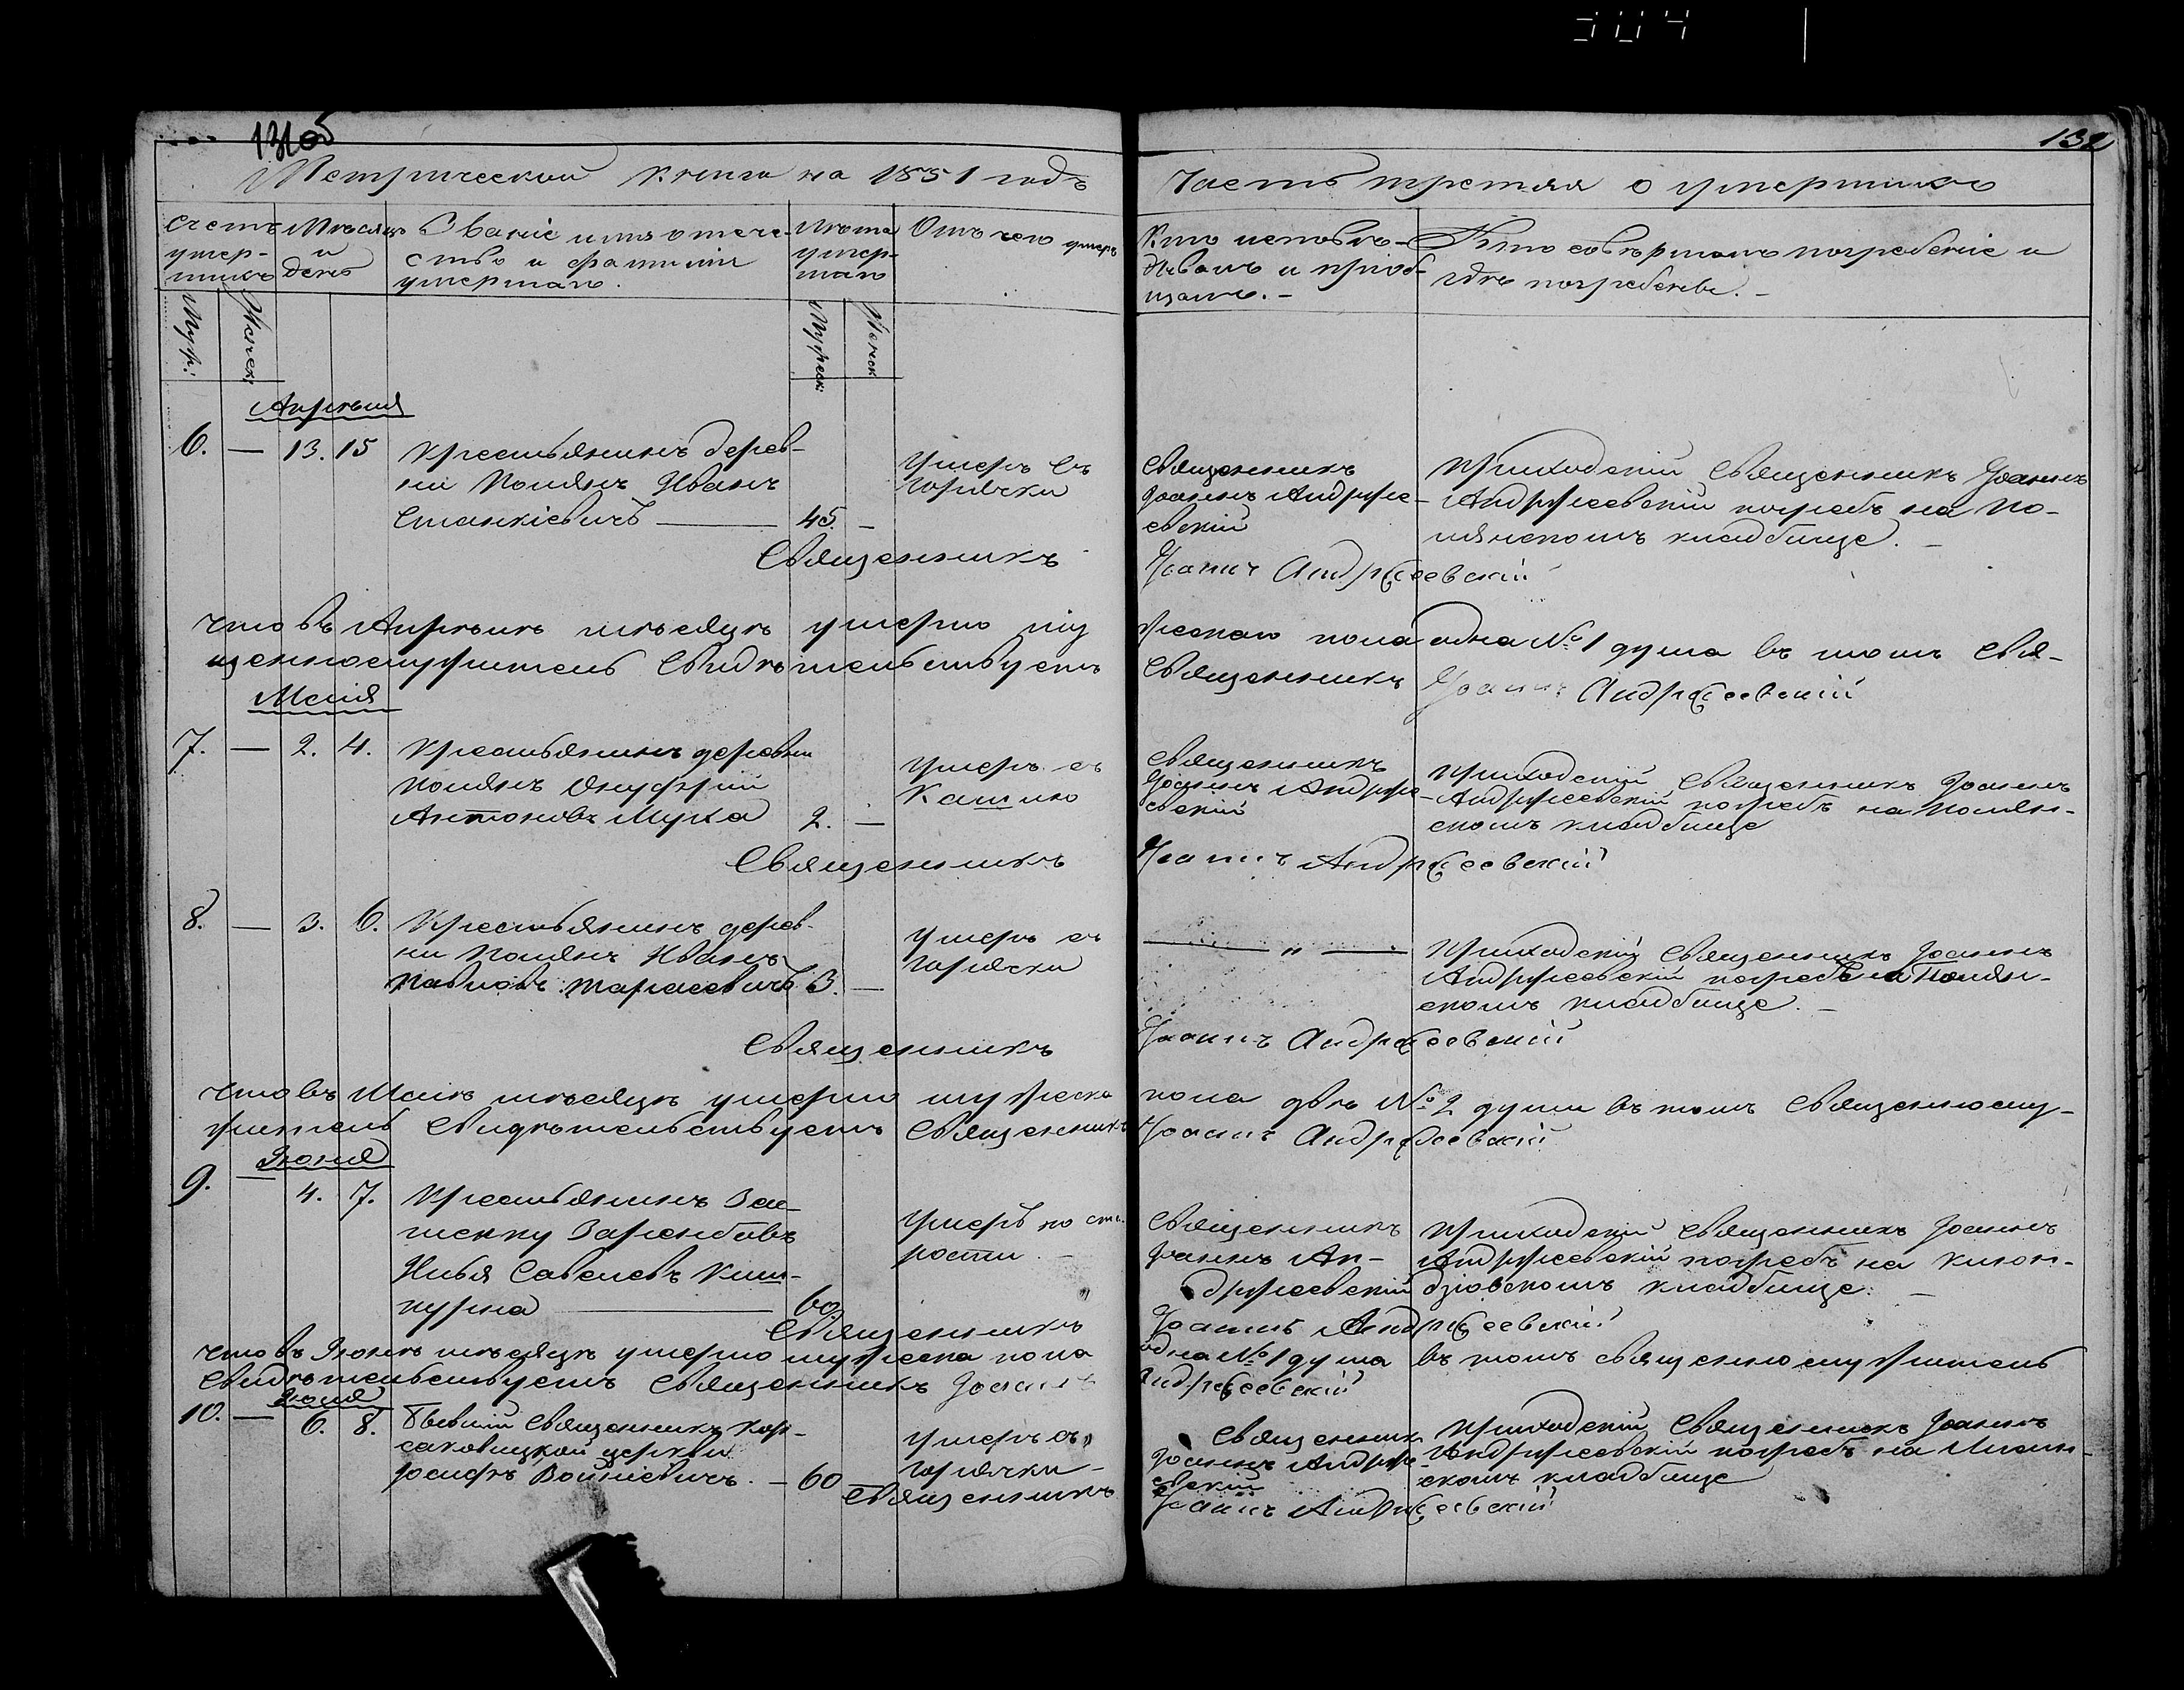 131об
132
Метрической книги на 1851 годъ
Часть третяя о умершихъ
Счетъ умер-
шихъ
Мѣсяцъ
и
день
Званіе имя отече-
ство и фамилія
умершаго.
Лѣта
умер-
шаго
Отъ чего умеръ
Кто исповѣ-
дывалъ и пріоб-
щалъ. -
Кто совершалъ погребеніе и
гдѣ погребены. -
Муж:
Женск:
Мужеск:
Женск
Апрѣля
6. — 13. 15 Крестьянинъ дерев-
ни Полянъ Иванъ
Станкіевичъ — 45. -
Умеръ съ
горячки
Священникъ
Іоаннъ Андруже-
евскій
Приходскій Священникъ Іоаннъ
Андружеевскій погребъ на По-
лянскомъ кладбище. -
Священникъ Іоаннъ Андружеевскій
Что въ Апрѣлѣ мѣсяцѣ умерло мужескаго пола одна № 1 душа въ томъ Свя-
щеннослужитель Свидѣтельствуетъ Священникъ Іоаннъ Андружеевскій
Маія
7. — 2. 4. Крестьянинъ деревни
Полянъ Онуфрій
Антоновъ Муха 2. —
Умеръ съ
Кашлю
Священникъ
Іоаннъ Андруже-
евскій
Приходскій Священникъ Іоаннъ
Андружеевскій погребъ на Полян-
скомъ кладбище
Священникъ Іоаннъ Андружеевскій
8. — 3. 6. Крестьянинъ дерев-
ни Полянъ Иванъ
Павловъ Тарасевичъ 3. —
Умеръ съ
горячки
— " —
Приходскій Священникъ Іоаннъ
Андружеевскій погребъ на Полян-
скомъ кладбище. -
Священникъ Іоаннъ Андружеевскій
Что въ Маіѣ мѣсяцѣ умерло мужеска пола двѣ № 2 души въ томъ Священнослу-
житель Свидѣтельствуетъ Священникъ Іоаннъ Андружеевскій
Іюня
9. — 4. 7. Крестьянинъ Зас-
тенку Зарембовъ
Илья Савелевъ
60
Умеръ по ста-
рости. -
Священникъ
Іоаннъ Ан-
дружеевскій
Приходскій Священникъ Іоаннъ
Андружеевскій погребъ на
кладбище. —
Священникъ Іоаннъ Андружеевскій
Что въ Іюнѣ мѣсяцѣ умерло мужеска пола одна № 1 душа въ томъ священнослужитель
Свидѣтельствуетъ Священникъ Іоаннъ Андружеевскій
Іюля
10. — 6. 8. Бывшій Священникъ Кор-
саковицкой церкви
Іосифъ Войневичъ. — 60 —
Умеръ съ
горячки
Священникъ
Іоаннъ Андруже-
евскій
Приходскій Священникъ Іоаннъ
Андружеевскій погребъ на
скомъ кладбище
Священникъ Іоаннъ Андружеевскій